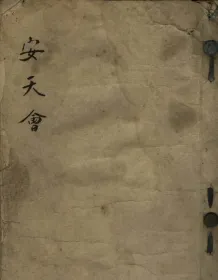 安天會